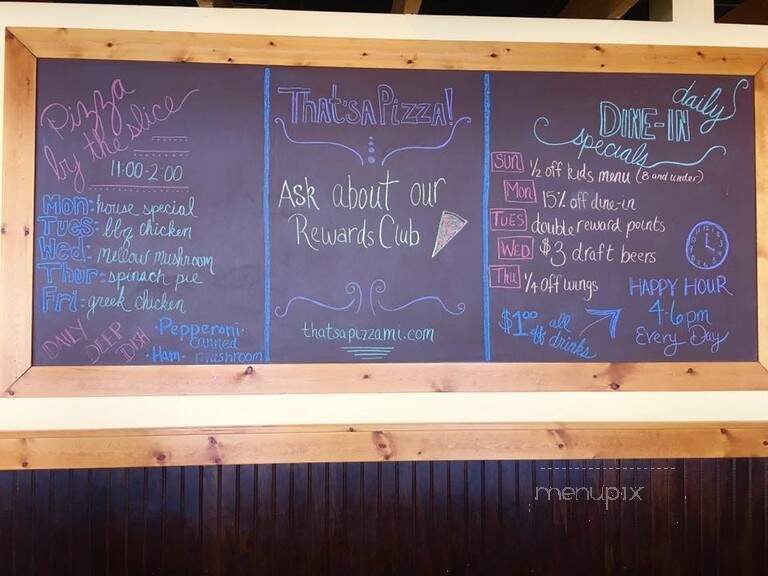 Pizza
by the slice
11:00-2:00
Mon: house special
Tues: bbq chicken
Wed: mellow mushroom
Thur: spinach pie
Fri: greek chicken
DAILY DEEP DISH
• Pepperoni •
canned
• Ham • mushroom
That'sa Pizza!
Ask about our
Rewards Club
thatsapizzami.com
daily
DINE-IN
specials
SUN 1/2 off kids menu (8 and under)
Mon 15% off dine-in
TUES double reward points
WED $3 draft beers
Thu 1/4 off wings
HAPPY HOUR
4-6pm
Every Day
$1.00 off all drinks
menupix